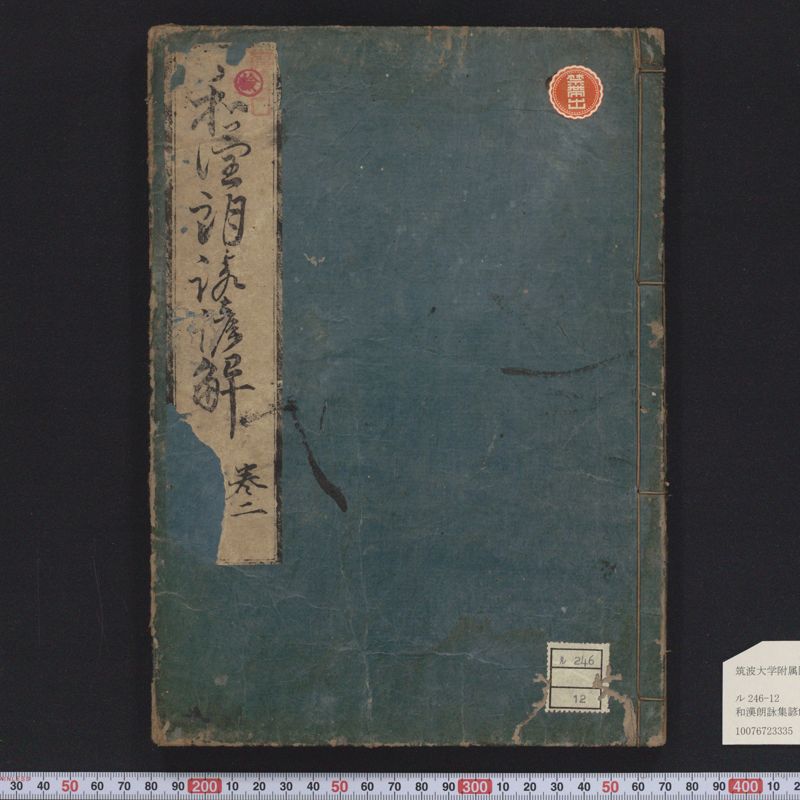 和漢朗詠諺解
巻二
禁帯出
ル 246
12
筑波大学附属
ル 246-12
和漢朗詠集諺
10076723335
30 40 50 60 70 80 90 200 10 20 30 40 50 60 70 80 90 300 10 20 30 40 50 60 70 80 90 400 10